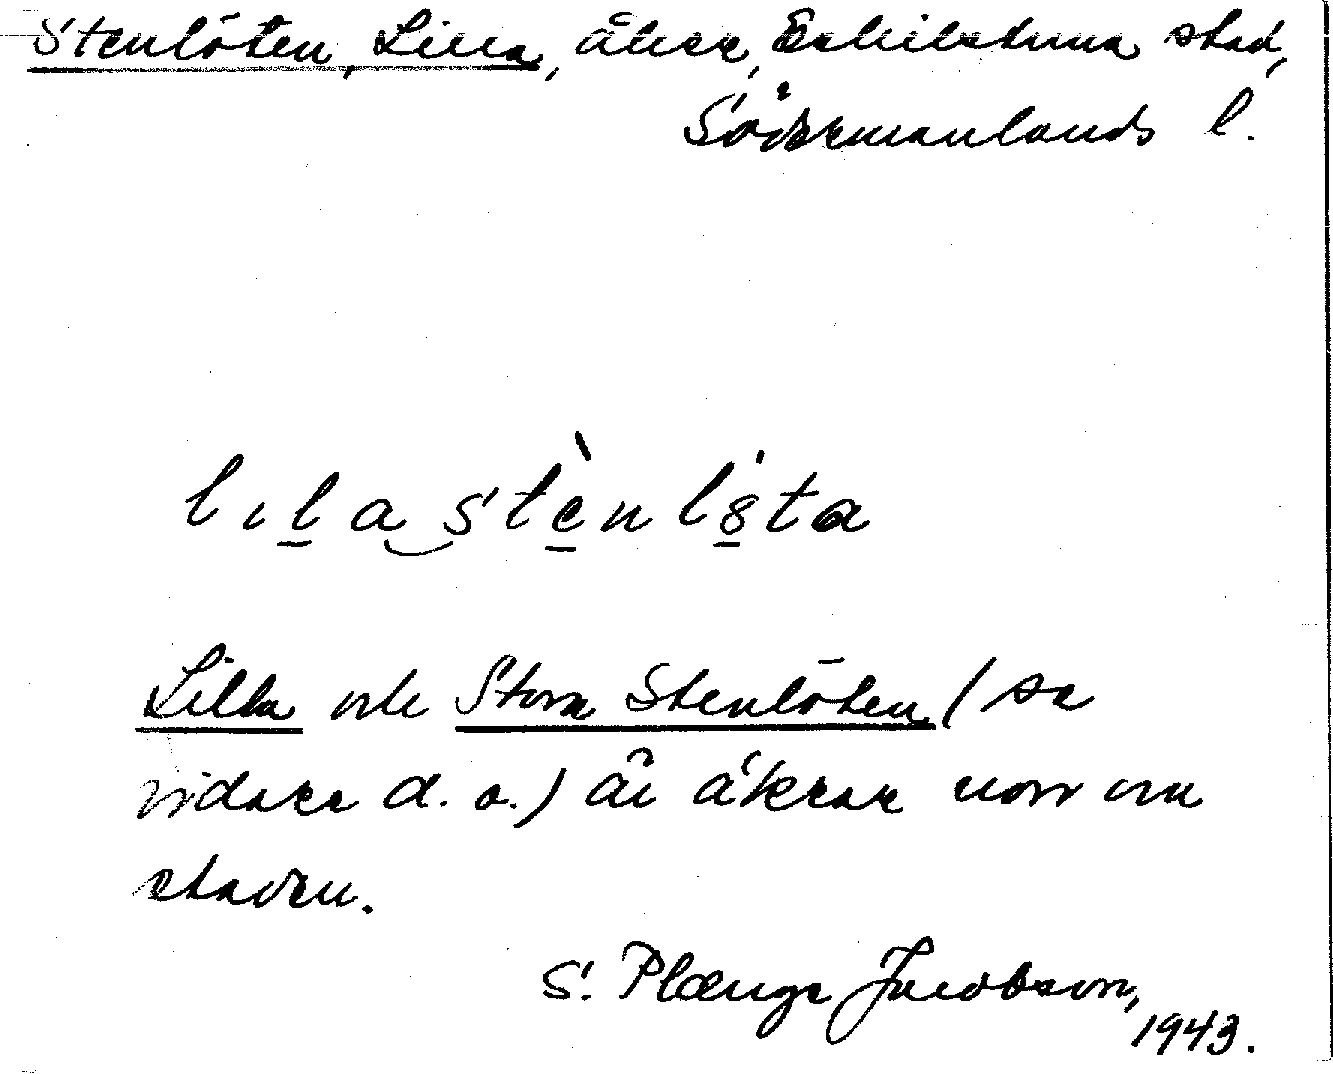 Stenlöten, Lilla, åker, Eskilstuna stad,
Södermanlands l.
lıla stènlöta
Lilla och Stora Stenlöten (se
vidare d. o.) är åkrar norr om
staden.
S. Plænge Jacobson,
1943.